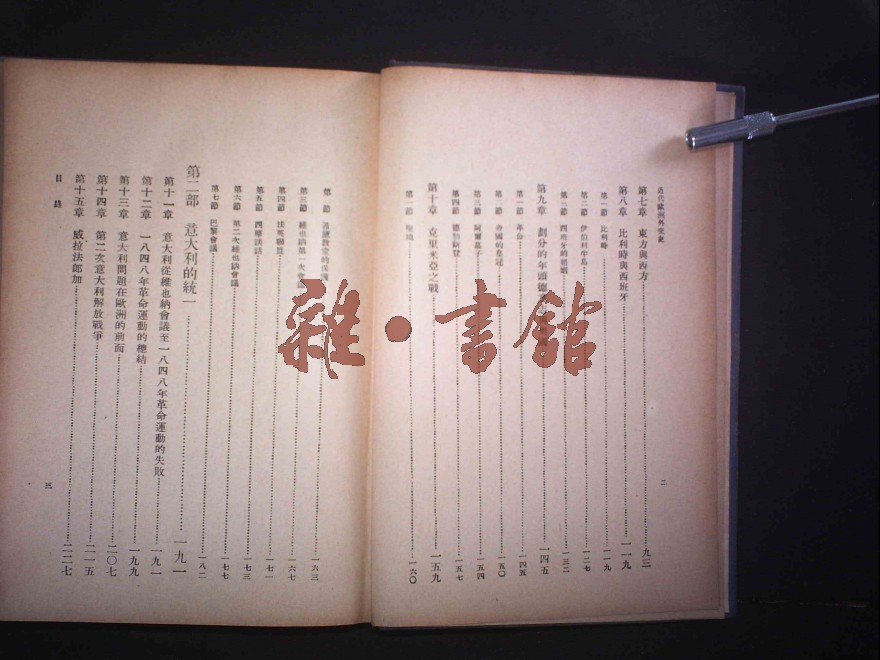 近代歐洲外交史
第七章 東方與西方 九三
第八章 比利時與西班牙 一一九
第一節 比利時 一一九
第二節 伊伯利牛島 一二七
第三節 西班牙的婚姻 一三二
第九章 劃分的年頭 一四五
第一節 革命 一四五
第二節 帝國的皇冠 一五〇
第三節 阿爾慕子 一五四
第四節 一五七
第十章 克里米亞之戰 一五九
第一節 一六〇
二
第二節 一六三
第三節 維也納第一次會議 一六七
第四節 法英聯盟 一七一
第五節 一七三
第六節 第二次維也納會議 一七七
第七節 巴黎會議 一八二
第二部 意大利的統一 一九一
第十一章 意大利從維也納會議至一八四八年革命運動的失敗 一九一
第十二章 一八四八年革命運動的總結 一九九
第十三章 意大利問題在歐洲的前面 二〇七
第十四章 第二次意大利解放戰爭 二一五
第十五章 威拉法郎加 二二七
目錄
三
雜•書館